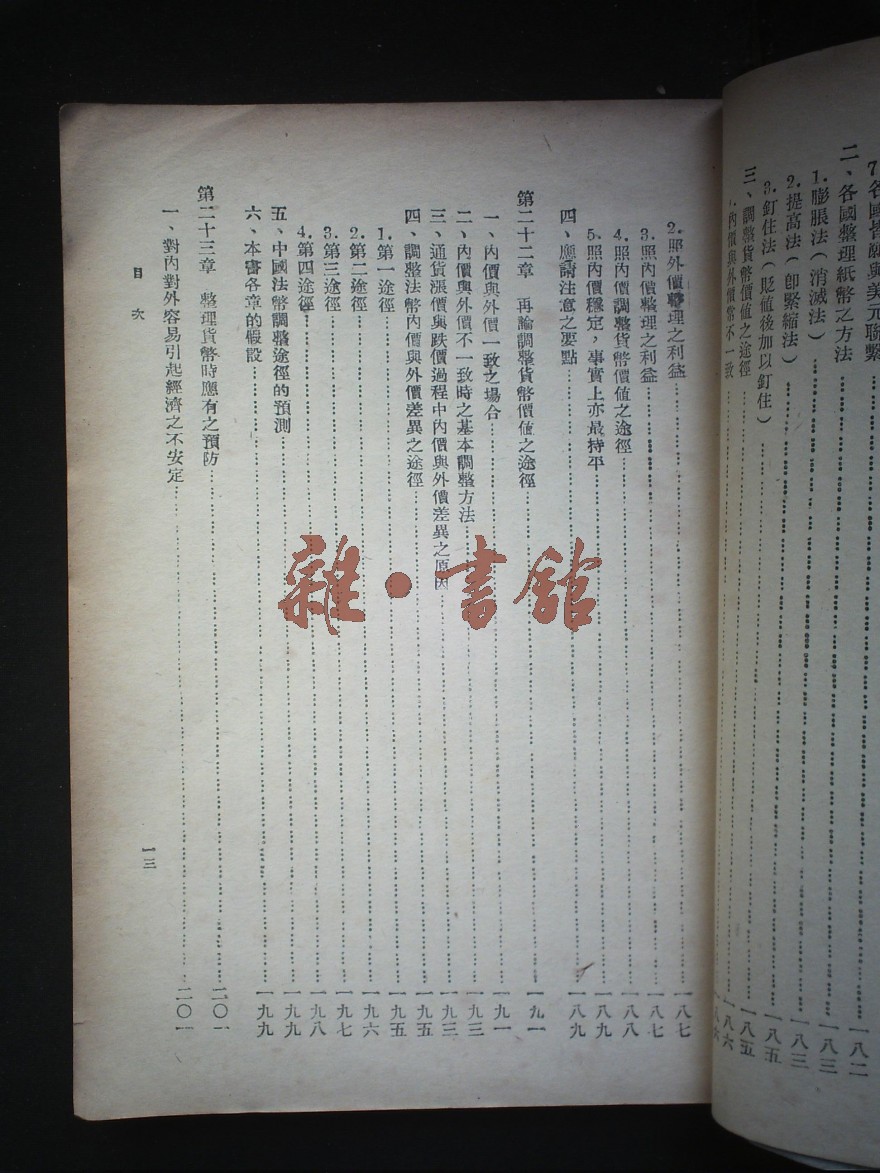 7.各國皆願與美元聯繫
二、各國整理紙幣之方法……一八二
1.膨脹法(消滅法)……一八三
2.提高法(卽緊縮法)……一八三
3.釘住法(貶値後加以釘住)……一八五
三、調整貨幣價値之途徑……一八五
1.內價與外價常不一致……一八六
2.照外價整理之利益……一八七
3.照內價整理之利益……一八七
4.照內價調整貨幣價値之途徑……一八八
5.照內價穩定,事實上亦最持平……一八九
四、應請注意之要點……一八九
第二十二章 再論調整貨幣價値之途徑……一九一
一、內價與外價一致之場合……一九一
二、內價與外價不一致時之基本調整方法……一九三
三、通貨漲價與跌價過程中內價與外價差異之原因……一九三
四、調整法幣內價與外價差異之途徑……一九五
1.第一途徑……一九五
2.第二途徑……一九六
3.第三途徑……一九七
4.第四途徑……一九八
五、中國法幣調整途徑的預測……一九九
六、本書各章的假設……一九九
第二十三章 整理貨幣時應有之預防……二〇一
一、對內對外容易引起經濟之不安定……二〇一
目次
一三
雜·書館